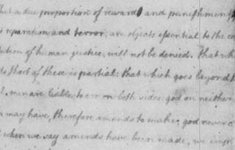 a due proportion of reward and punishment
reparation and terror, are objects essential to the
of human justice, will not be denied. That wh
short of these is partial: that which goes beyond
men are liable to err on both sides: god on neither
may have, therefore amends to make, god never
when we say amends have been made, we